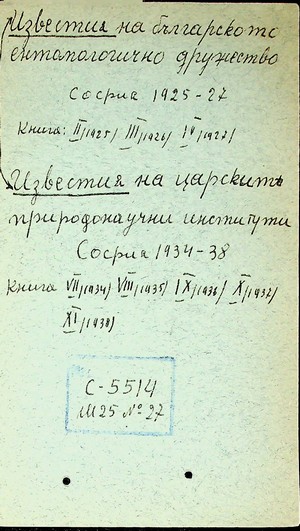 Известия на българското
ентомологично дружество
София 1925-27
Книга: II/1925/ III/1926/ IV/1927/
Известия на царскитѣ
природонаучни институти
София 1934-38
Книга VII/1934/ VIII/1935/ IX/1936/ X/1937/
XI/1938/
С-5514
М25 № 27